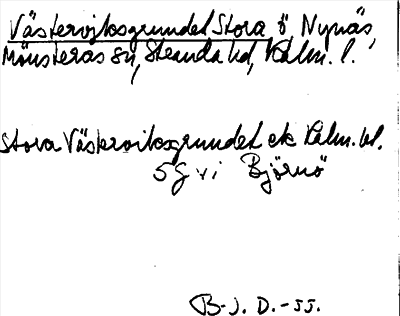 Västerviksgrundet Stora ö Nynäs,
Mönsterås sn, Stranda hd, Kalm. l.
Stora Västerviksgrundet ek Kalm. bl.
5 g vi Björnö
B-j. D. -55.